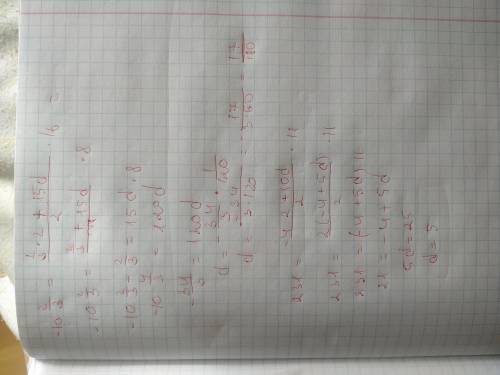 -10 2/3 = (1/3 · 2 + 15d)/2 · 16 =
-10 2/3 = (2/3 + 15d) · 8
-10 2/3 - 2/3 = 15d · 8
-10 4/3 = 120d
-34/3 = 120d
d = -34/3 · 1/120
= -17/180
231 = (-4·2 + 10d)/2 · 11
231 = 2(-4+5d)/2 · 11
231 = (-4+5d) 11
21 = -4 + 5d
5d = 25
d = 5